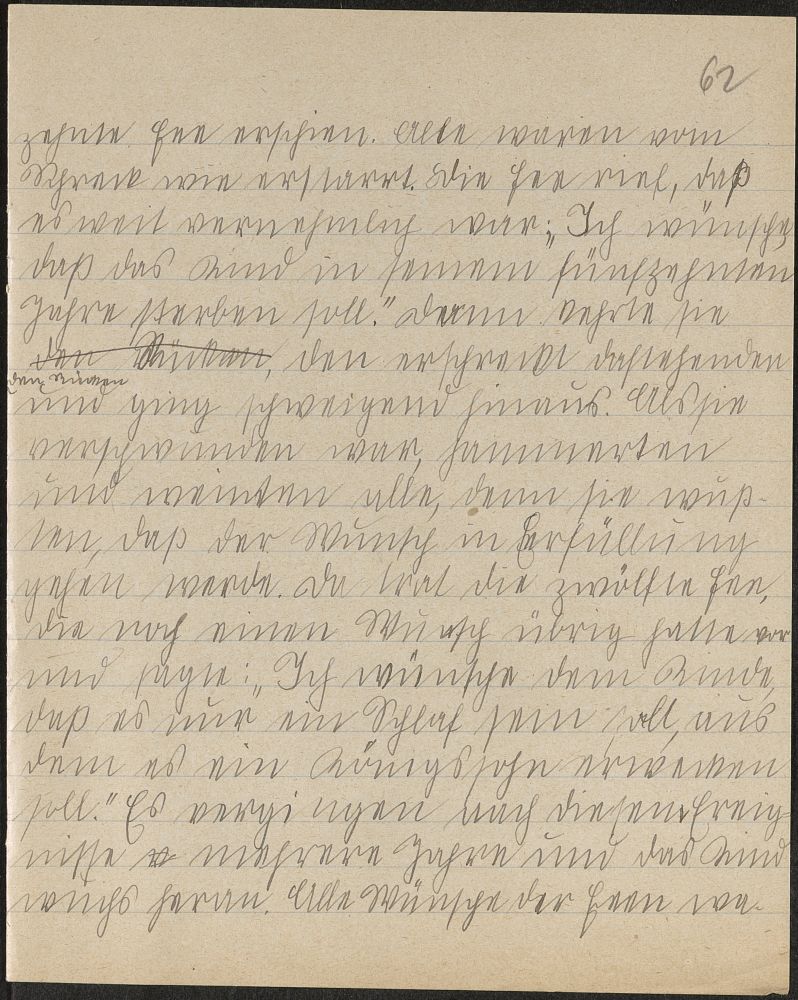 62
zehnte Fee erschien. Alle waren vom
Schreck wie erstarrt. Die Fee rief, daß
es weit vernehmlich war: „Ich wünsche
daß das Kind in seinem fünfzehnten
Jahre sterben soll." Dann kehrte sie
den Rücken, den erschreckt dastehenden
den Rücken
und ging schweigend hinaus. Als sie
verschwunden war, jammerten
und weinten alle, denn sie wuß-
ten, daß der Wunsch in Erfüllung
gehen werde. Da trat die zwölfte Fee,
die noch einen Wunsch übrig hatte vor
und sagte: „Ich wünsche dem Kinde,
daß es nur ein Schlaf sein soll, aus
dem es ein Königssohn erwecken
soll." Es vergingen nach diesem Ereig-
nisse mehrere Jahre und das Kind
wuchs heran. Alle Wünsche der Feen wa-